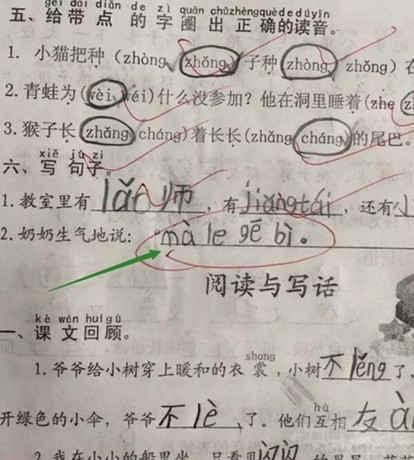 gěi dài diǎn de zì quān chūzhèngquèdedúyīn
五、给带点的字圈出正确的读音。
1. 小猫把种（zhòng zhǒng）子种（zhòng zhǒng）在
2. 青蛙为（wèi wéi）什么没参加？他在洞里睡着（zhe
3. 猴子长（zhǎng cháng）着长长（zhǎng cháng）的尾巴。
xiě jù zi
六、写句子。
1. 教室里有 lǎo师，有jiǎngtái，还有小
2. 奶奶生气地说：“mà le gē bì。
阅读与写话
kè wén huí gù
一、课文回顾。
shang
1. 爷爷给小树穿上暖和的衣裳，小树不lěng了。
开绿色的小伞，爷爷不lè了。他们互相友ài
hù
2. 我在小小的船里坐，只看见闪闪的星星